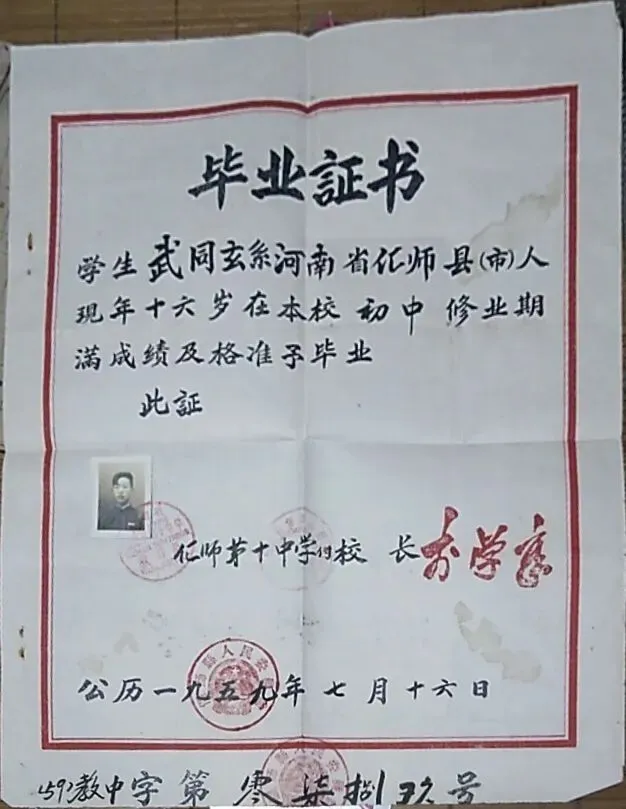 毕业証书
学生武同玄系河南省伛师县(市)人
现年十六岁在本校初中修业期
满成绩及格准予毕业
此証
伛师第十中学付校长
公历一九五九年七月十六日
教中字第零柒捌号